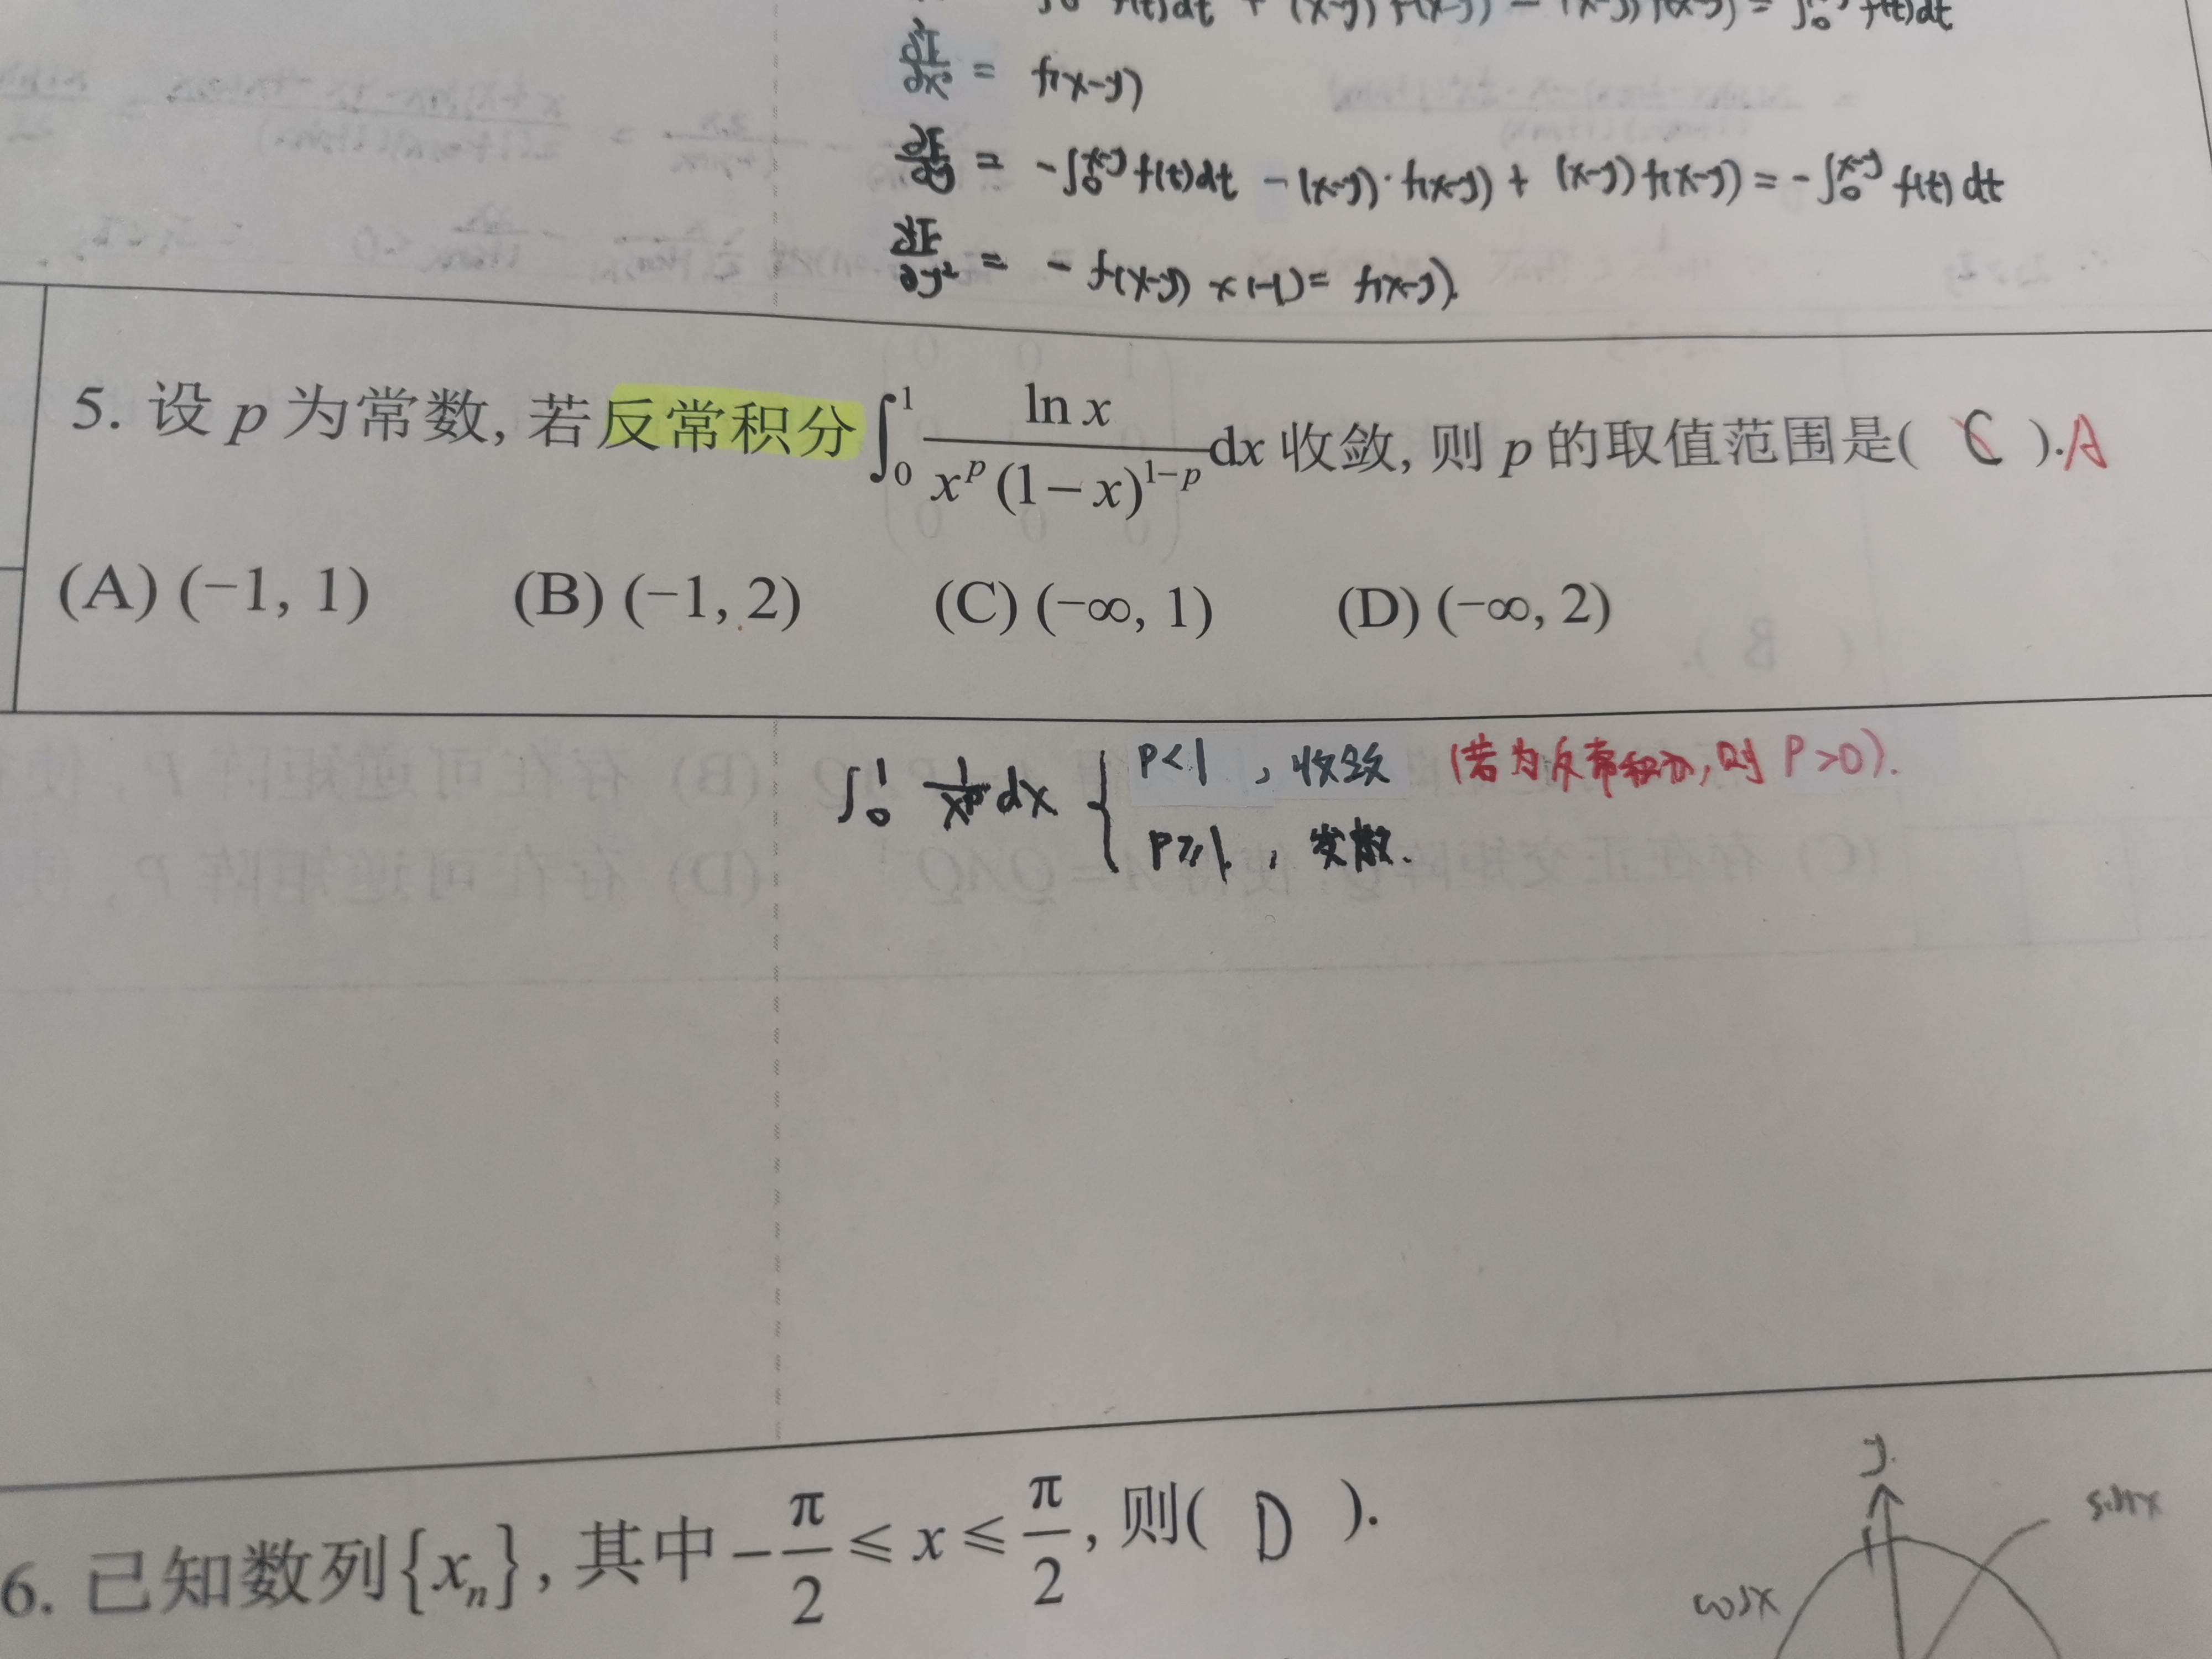 ∫₀ f(t)dt + (x-y) f(x-y) - (x-y) f(x-y) = ∫₀ f(t)dt
= f(x-y)
∂F/∂y = -∫₀^(x-y) f(t)dt - (x-y)·f(x-y) + (x-y) f(x-y) = -∫₀^(x-y) f(t) dt
∂²F/∂y² = - f(x-y) × (-1) = f(x-y).
5. 设 p 为常数, 若反常积分 ∫₀¹ ln x / (x^p (1-x)^(1-p)) dx 收敛, 则 p 的取值范围是( C ). A
(A) (-1, 1) (B) (-1, 2) (C) (-∞, 1) (D) (-∞, 2)
∫₀¹ 1/x^p dx { P<1, 收敛 (若为反常积分, 则 P>0).
P≥1, 发散.
6. 已知数列{xₙ}, 其中 -π/2 ≤ x ≤ π/2, 则( D ).
y
sinx
cosx